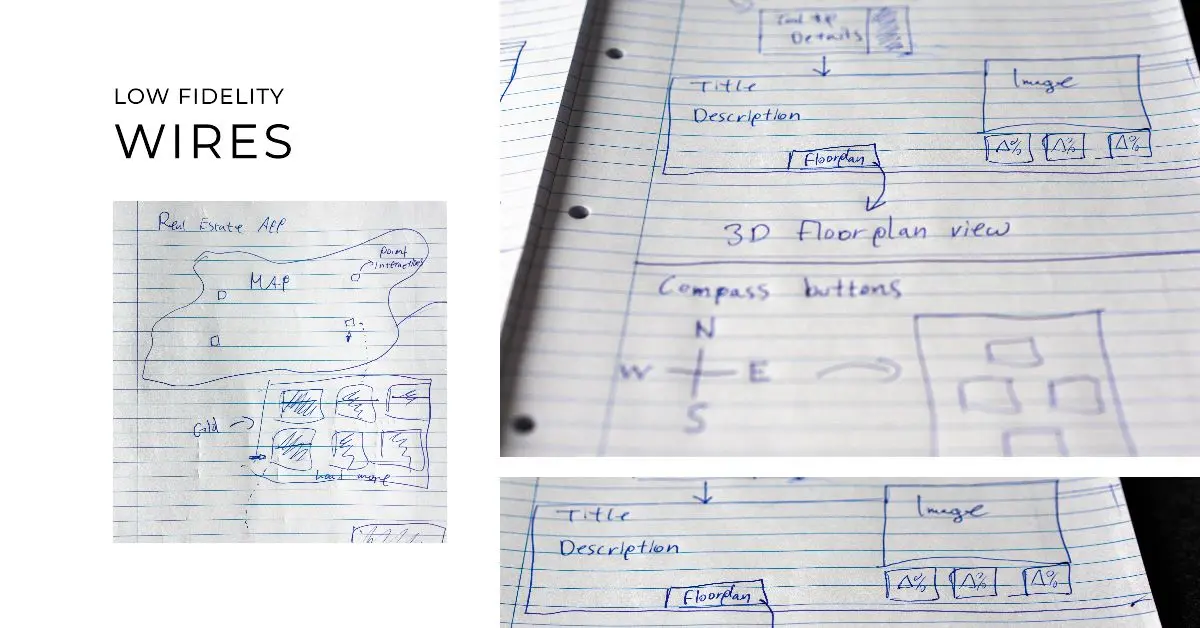 LOW FIDELITY
WIRES
Real Estate App
MAP
point
interaction
Grid
load more
Tool tip
Details
Title
Image
Description
Δ% Δ% Δ%
Floorplan
3D Floorplan view
Compass buttons
N
W E
S
Title
Image
Description
Δ% Δ% Δ%
Floorplan